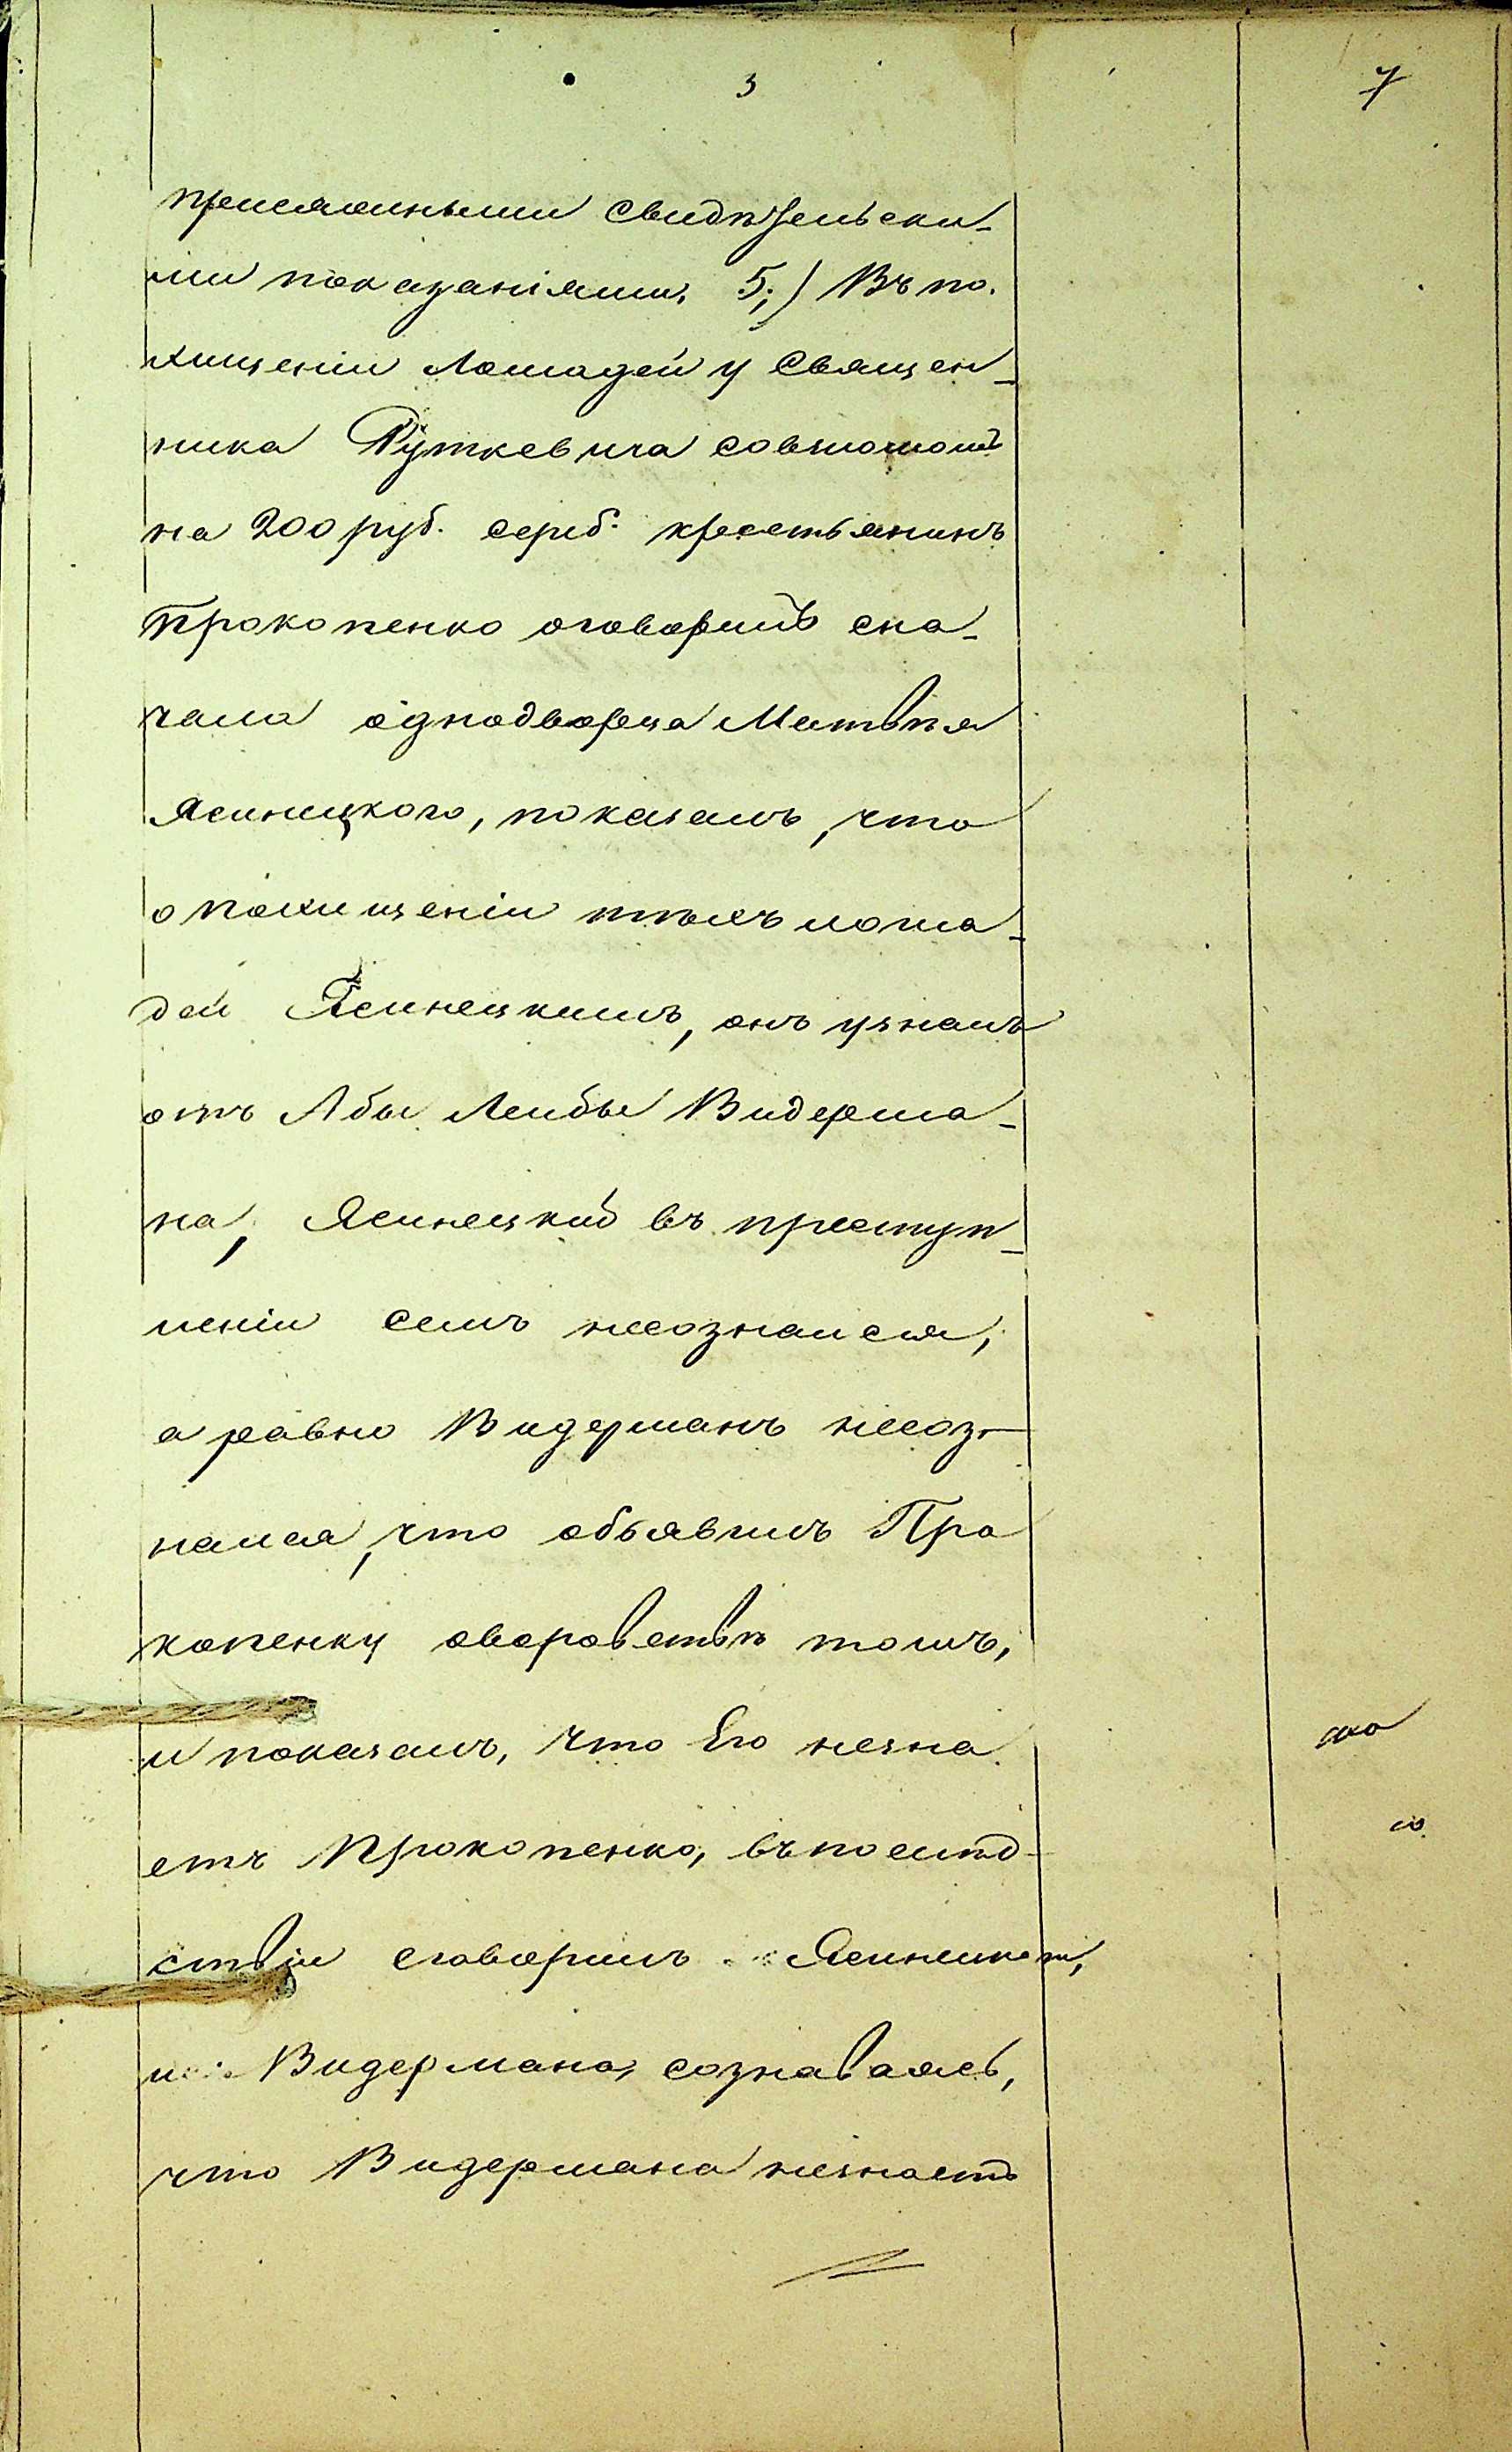 3
7
присяжными свидѣтельски-
ми показаніями. 5.) Въ по-
хищеніи Лошадей у Священ-
ника Руткевича
на 200 руб. сереб. крестьянинъ
Прокопенко оговоривъ сна-
чала однодворца Матвѣя
Ясинецкого, показалъ, что
о похищеніи тѣхъ лоша-
дей Ясинецкимъ, онъ узналъ
отъ Абы Лейбы Видерма-
на, Ясинецкій въ преступ-
леніи семъ несознался,
а равно Видерманъ несоз-
нался, что объявилъ Про
копенку оворовствѣ томъ,
и показалъ, что Его незна
етъ Прокопенко, въпослѣд-
ствіи сговорилъ Ясинецкого,
и Видермана, сознаваясь,
что Видермана незнаетъ